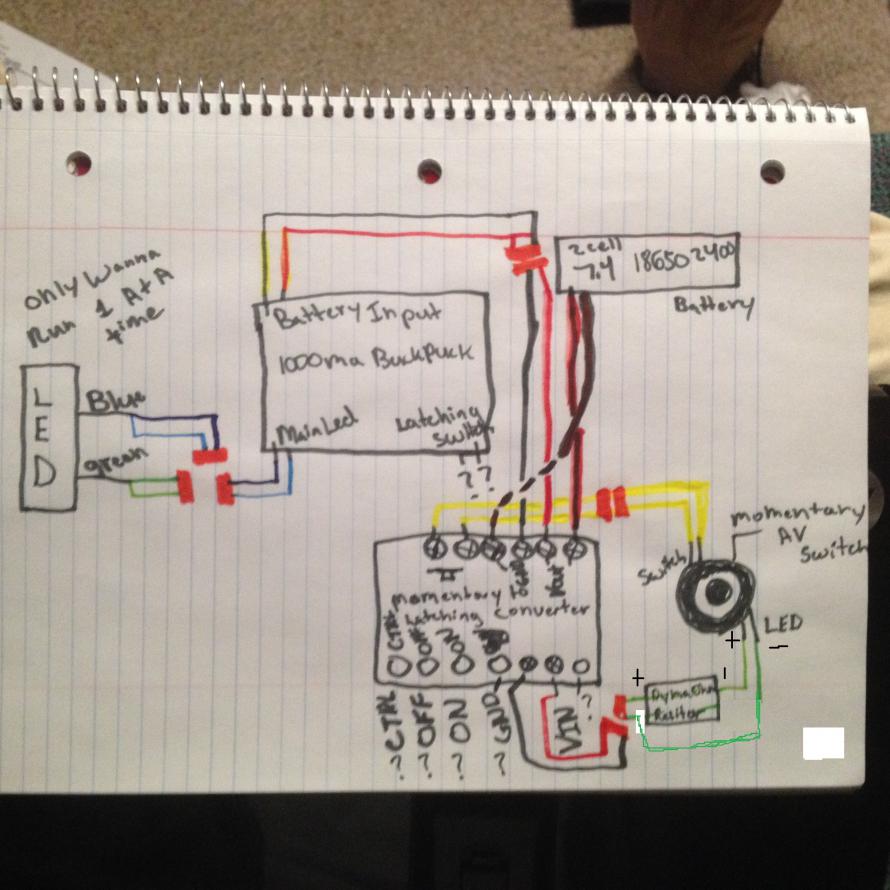 only Wanna
Run 1 At A
time
L
E
D
Blue
green
Battery Input
1000ma BuckPuck
Main Led
Latching
Switch
? ?
2 cell
7.4 18650 2400
Battery
momentary
AV
Switch
Switch
LED
+
-
momentary
Latching Converter
Vout
CTRL
OFF
ON
? CTRL
? OFF
? ON
? GND
VIN
?
+
Resitor